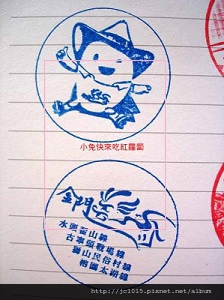 小兔快來吃紅蘿蔔
金門
水頭翟山線
古寧頭戰場線
獅山民俗村線
榕園太湖線
http://jc1015.pixnet.net/album